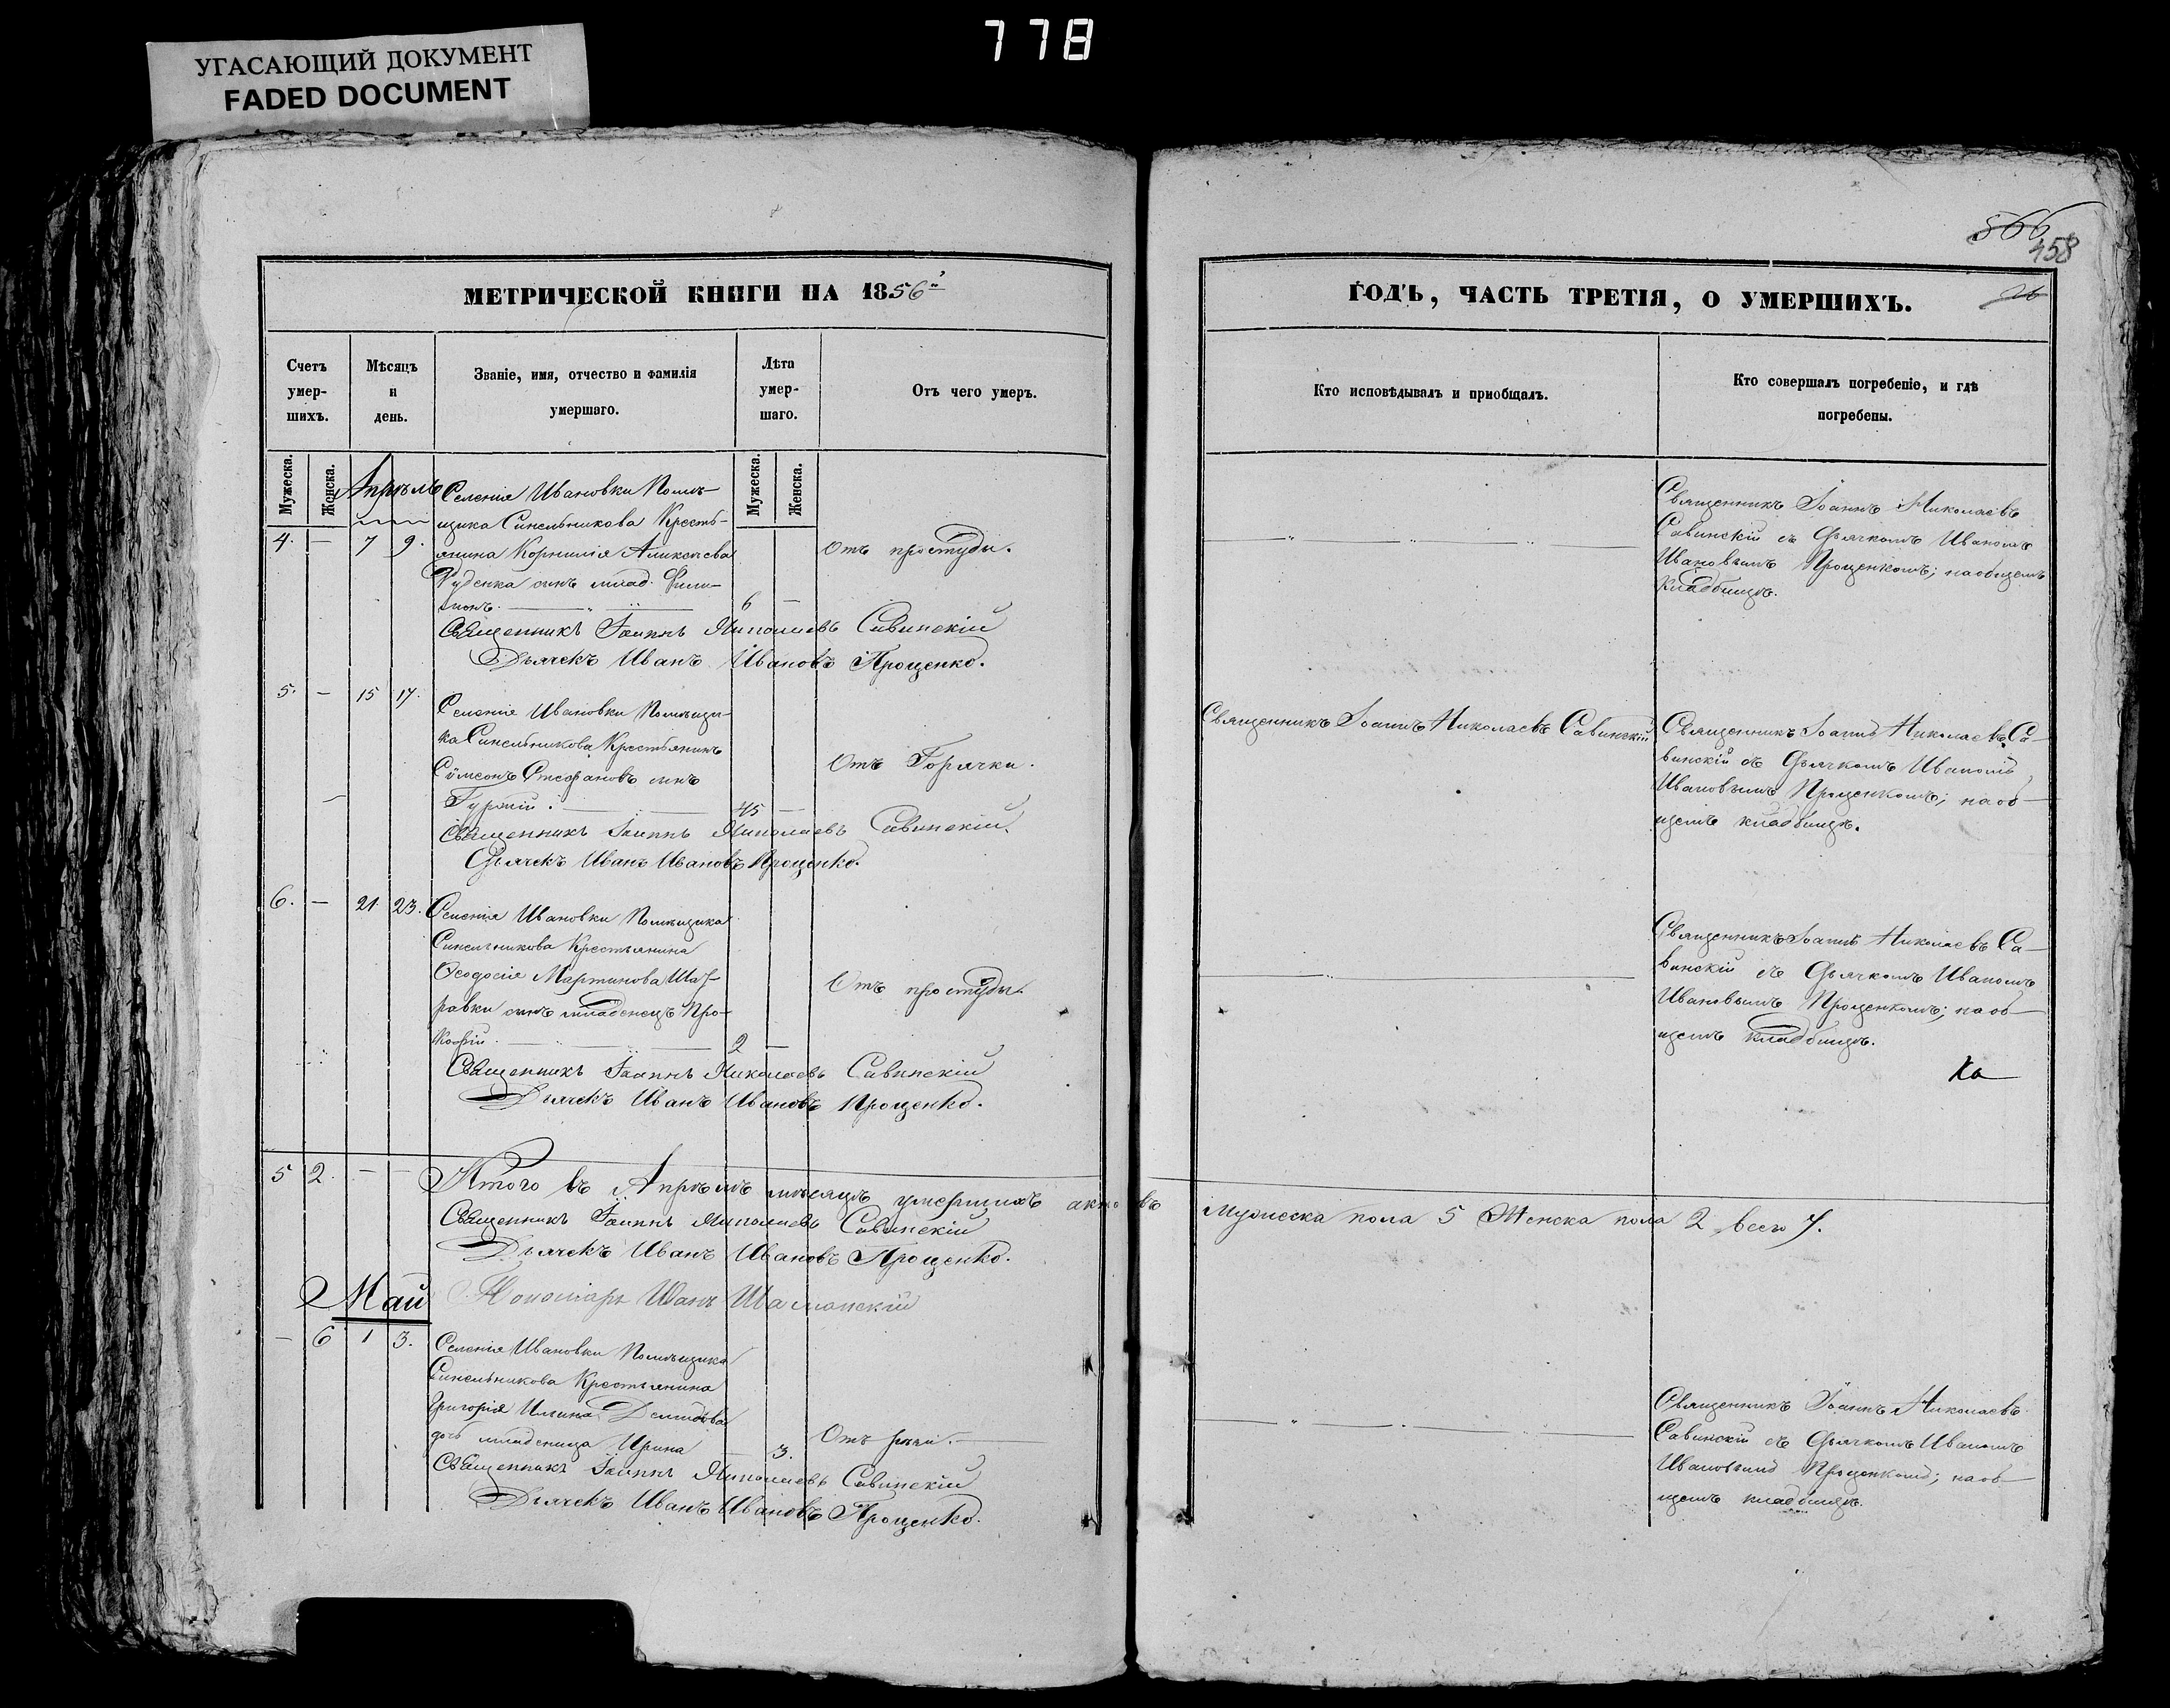 778
УГАСАЮЩИЙ ДОКУМЕНТ
FADED DOCUMENT
566
458
26
МЕТРИЧЕСКОЙ КНИГИ НА 1856й
ГОДЪ, ЧАСТЬ ТРЕТІЯ, О УМЕРШИХЪ.
Счетъ умер-шихъ.
Мѣсяцъ и день.
Званіе, имя, отчество и фамилія умершаго.
Лѣта умер-шаго.
Отъ чего умеръ.
Кто исповѣдывалъ и приобщалъ.
Кто совершалъ погребеніе, и гдѣ погребены.
Мужеска.
Женска.
Мужеска.
Женска.
Апрѣль
4. — 7 9.
Селенія Ивановки Помѣ-
щика Синельникова Кресть-
янина Корнилія Алексѣева
Руденка сынъ млад. Фили-
монъ. 6 —
Отъ простуды.
Священникъ Іоаннъ Николаевъ
Савинскій съ Дьячкомъ Иваномъ
Ивановымъ Проценкомъ; на общемъ
кладбищѣ.
Священникъ Іоаннъ Николаевъ Савинскій
Дьячекъ Иванъ Ивановъ Проценко.
5. — 15 17.
Селенія Ивановки Помѣщи-
ка Синельникова Крестьянинъ
Сѵмеонъ Стефановъ сынъ
45 —
Отъ Горячки.
Священникъ Іоаннъ Николаевъ Савинскій
Священникъ Іоаннъ Николаевъ Са-
винскій съ Дьячкомъ Иваномъ
Ивановымъ Проценкомъ; на об-
щемъ кладбищѣ.
Священникъ Іоаннъ Николаевъ Савинскій
Дьячекъ Иванъ Ивановъ Проценко.
6. — 21 23.
Селенія Ивановки Помѣщика
Синельникова Крестьянина
Ѳеодосія Мартинова Шаф-
равки сынъ младенецъ Про-
кофій. 2 —
Отъ простуды.
Священникъ Іоаннъ Николаевъ Са-
винскій съ Дьячкомъ Иваномъ
Ивановымъ Проценкомъ; на об-
щемъ кладбищѣ.
Священникъ Іоаннъ Николаевъ Савинскій
Дьячекъ Иванъ Ивановъ Проценко.
5 2. — —
Итого въ Апрѣлѣ мѣсяцѣ умершихъ актовъ
Мужеска пола 5 Женска пола 2 всего 7.
Священникъ Іоаннъ Николаевъ Савинскій
Дьячекъ Иванъ Ивановъ Проценко.
Пономарь Иванъ
Май
— 6 1 3.
Селенія Ивановки Помѣщика
Синельникова Крестьянина
Григорія Ильина Демидова
дочь младеница Ирина — 3.
Отъ
Священникъ Іоаннъ Николаевъ
Савинскій съ Дьячкомъ Иваномъ
Ивановымъ Проценкомъ; на об-
щемъ кладбищѣ.
Священникъ Іоаннъ Николаевъ Савинскій
Дьячекъ Иванъ Ивановъ Проценко.